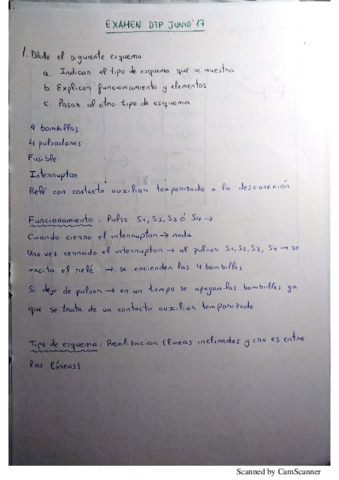 EXAMEN DTP JUNIO'17
1. Dado el siguiente esquema
a. Indicar el tipo de esquema que se muestra
b. Explicar funcionamento y elementos
c. Pasar al otro tipo de esquema
4 bombillas
4 pulsadores
Fusible
Interruptor
Relé con contacto auxiliar temporizado a la desconexión
Funcionamento: Pulso S1, S2, S3 ó S4 →
Cuando cierro el interruptor → nada
Una vez cerrado el interruptor → al pulsar S1, S2, S3, S4 → se
excita el relé → se encienden las 4 bombillas
Si dejo de pulsar → en un tiempo se apagan las bombillas ya
que se trata de un contacto auxiliar temporizado
Tipo de esquema: Realización (líneas inclinadas y entre
las líneas)
Scanned by CamScanner